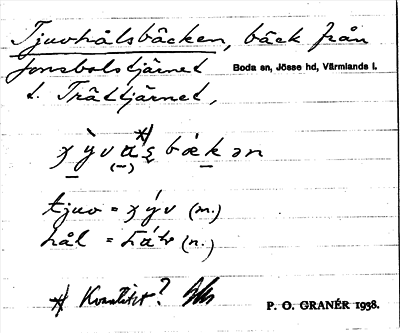 Tjuvhålsbäcken, bäck från
Jonsbolstjärnet Boda sn, Jösse hd, Värmlands l.
t. Trättjärnet,
tjuv = (m.)
hål = (n.)
*) Kvantitet?
P. O. GRANÉR 1938.